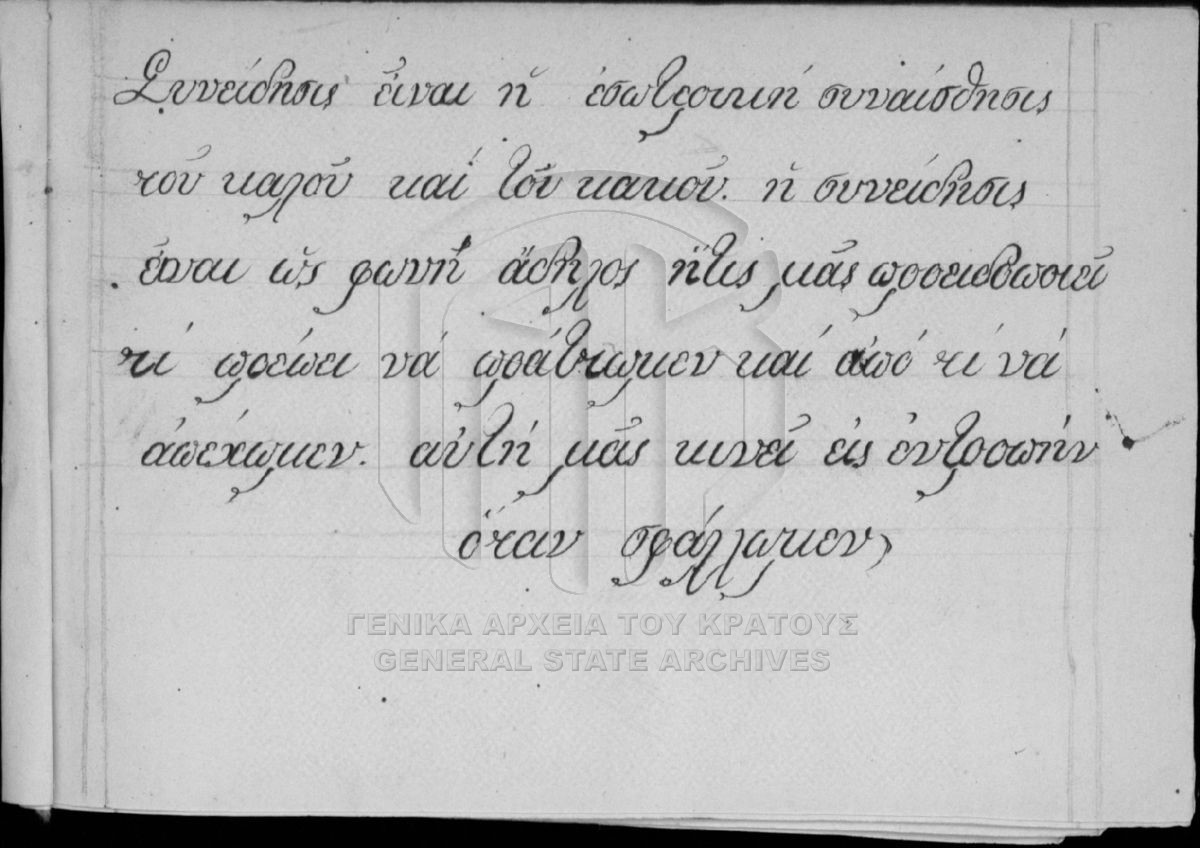 Συνείδησις εἶναι ἡ ἐσωτερική συναίσθησις
τοῦ καλοῦ καί τοῦ κακοῦ. ἡ συνείδησις
εἶναι ὡς φωνή ἄδηλος ἥτις μᾶς προειδοποιεῖ
τί πρέπει νά πράττωμεν καί ἀπό τί νά
ἀπέχωμεν. αὐτή μᾶς κινεῖ εἰς ἐντροπήν
ὅταν σφάλλωμεν,
ΓΕΝΙΚΑ ΑΡΧΕΙΑ ΤΟΥ ΚΡΑΤΟΥΣ
GENERAL STATE ARCHIVES